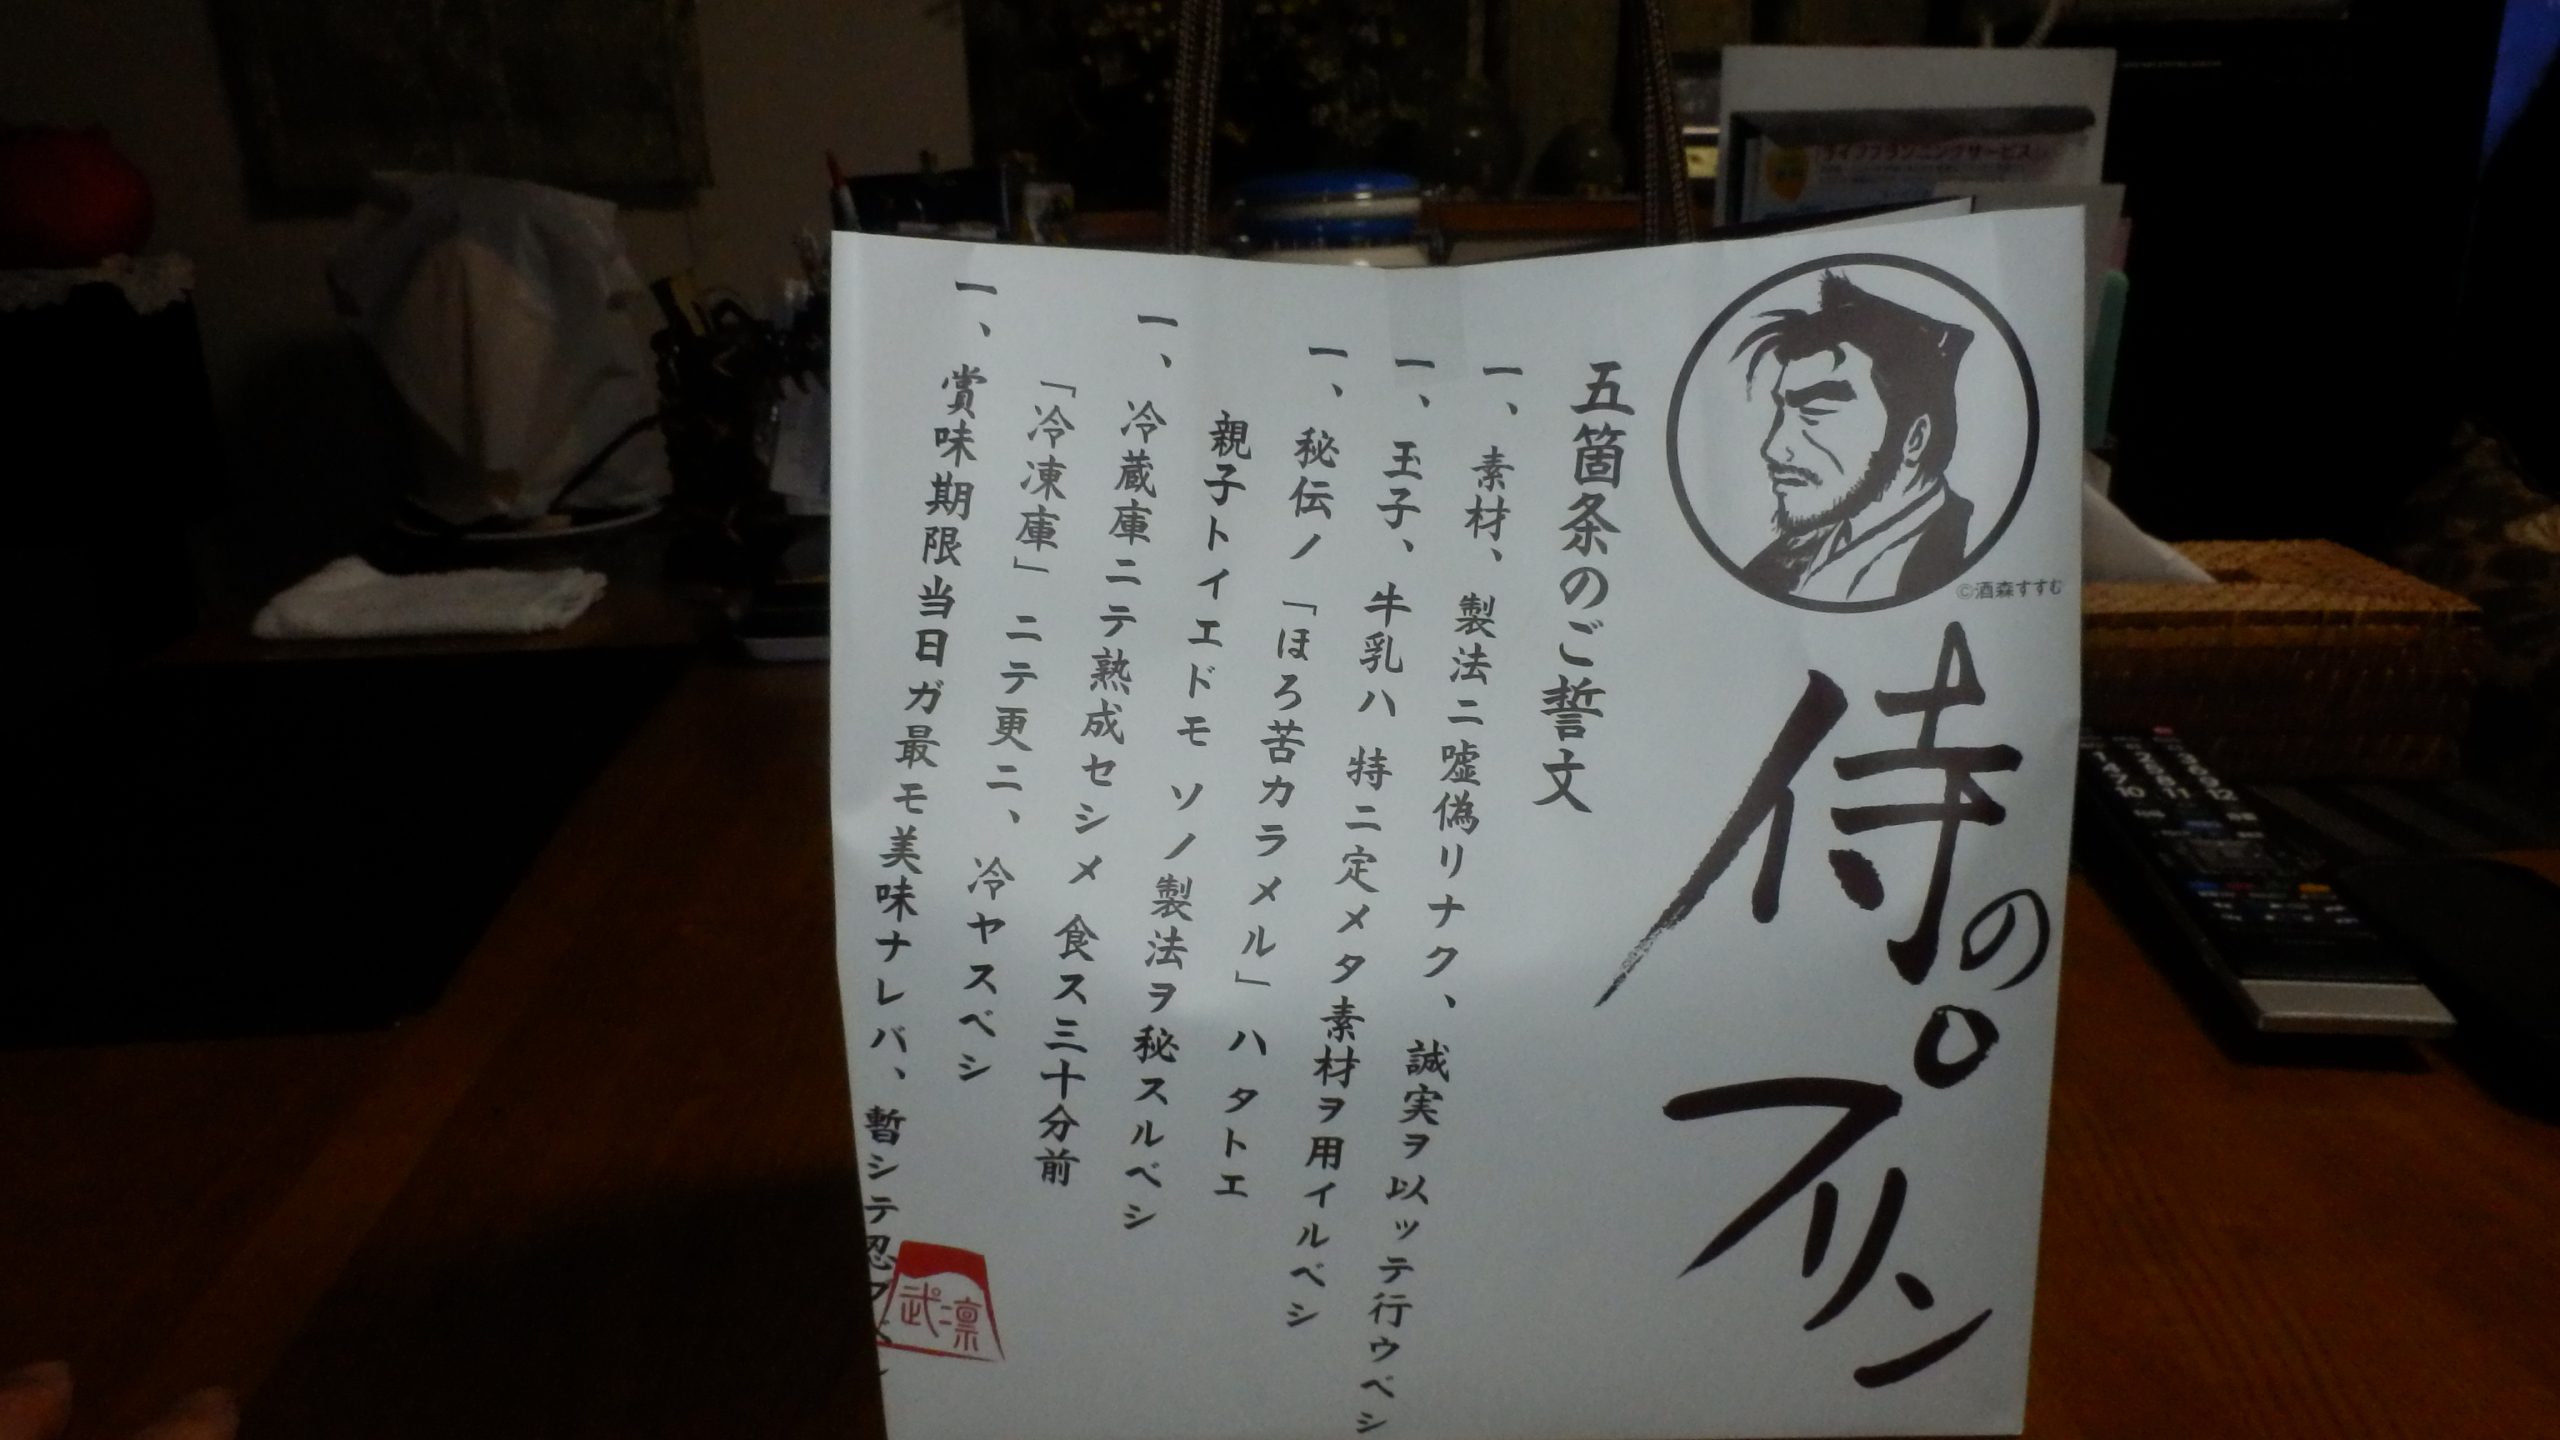 ©酒森すすむ
侍のプリン
五箇条のご誓文
一、素材、製法ニ嘘偽リナク、誠実ヲ以ッテ行ウベシ
一、玉子、牛乳ハ 特ニ定メタ素材ヲ用イルベシ
一、秘伝ノ「ほろ苦カラメル」ハ タトエ
親子トイエドモ ソノ製法ヲ秘スルベシ
一、冷蔵庫ニテ熟成セシメ 食ス三十分前
「冷凍庫」ニテ更ニ、冷ヤスベシ
一、賞味期限当日ガ最モ美味ナレバ、暫シテ忍
武士凛
ライフプランニングサービス